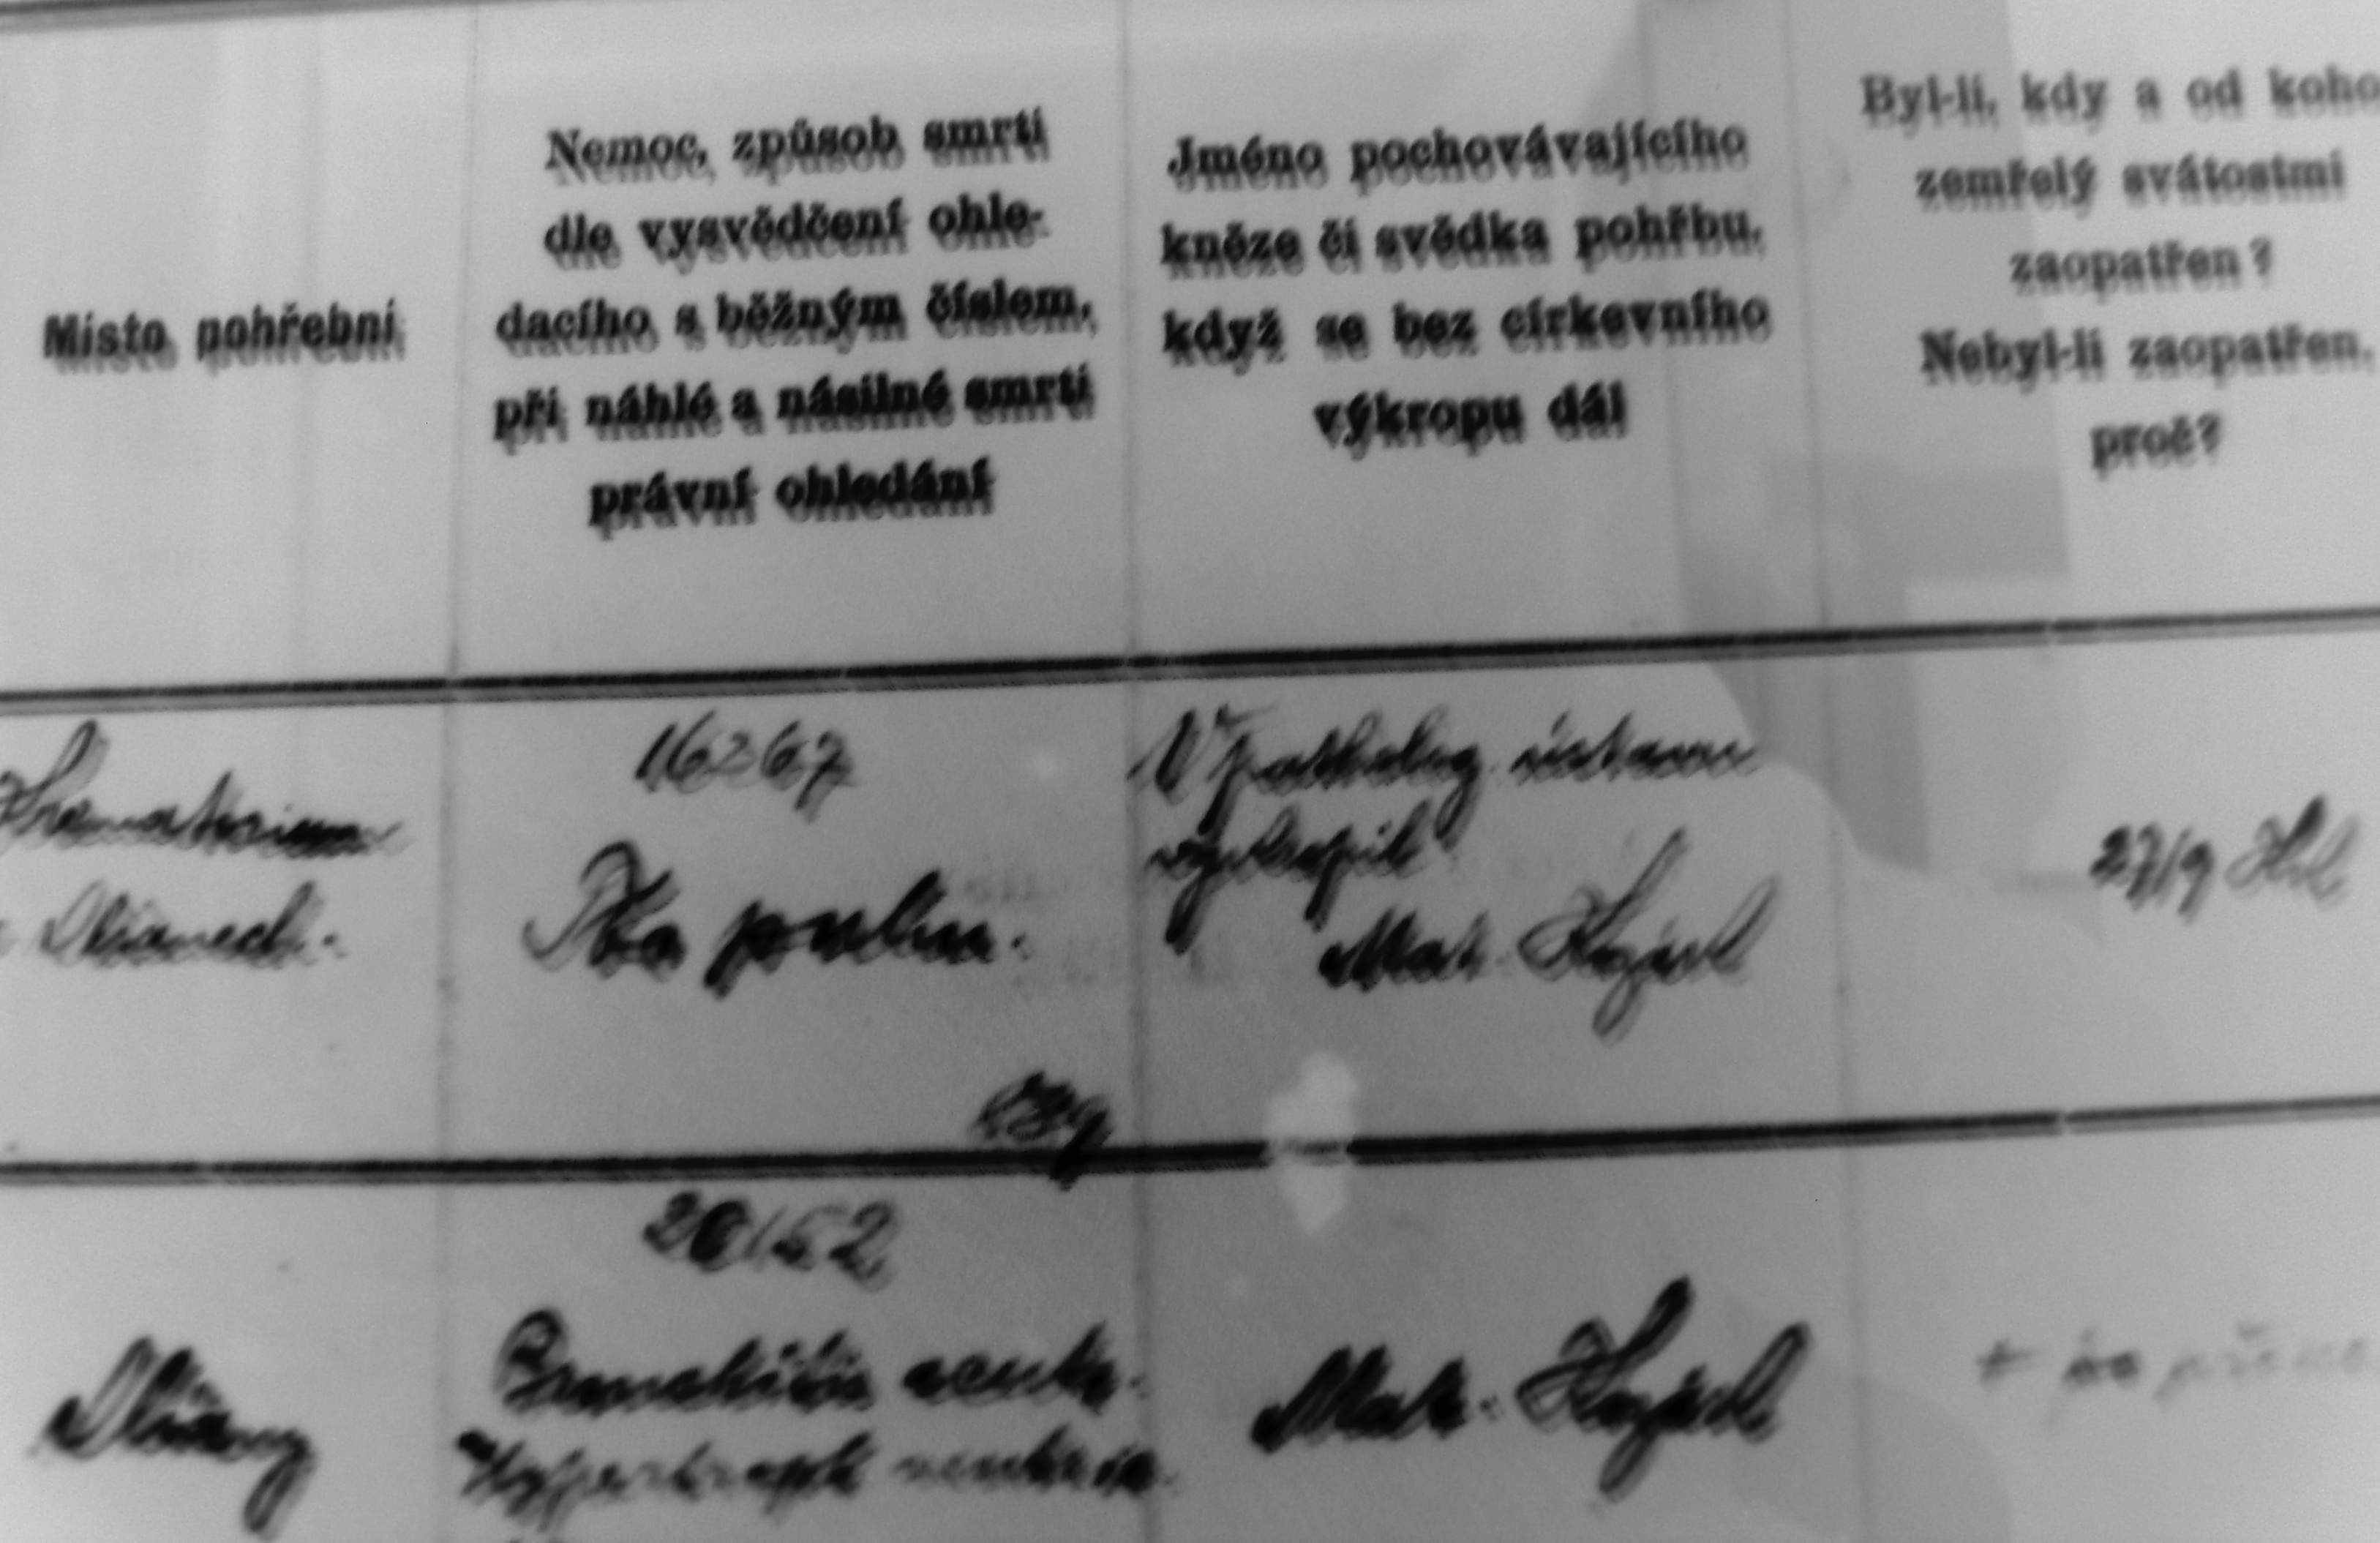 Místo pohřební
Nemoc, způsob smrti
dle vysvědčení ohle-
dacího s běžným číslem,
při náhlé a násilné smrti
právní ohledání
Jméno pochovávajícího
kněze či svědka pohřbu,
když se bez církevního
výkropu dál
Byl-li, kdy a od koho
zemřelý svátostmi
zaopatřen?
Nebyl-li zaopatřen,
proč?
Krematorium
Olšanech.
16267
Tbc pulm.
V patholog. ústavu
vykropil
Mat.
27/9
Olšany
Bronchitis acuta.
Mat.